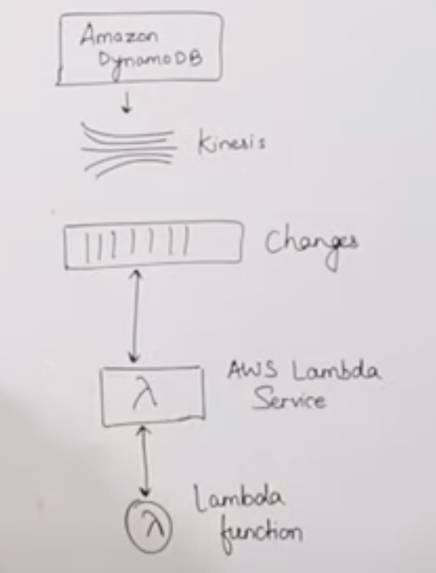 Amazon
DynamoDB
Kinesis
Changes
λ
AWS Lambda
Service
λ
Lambda
function